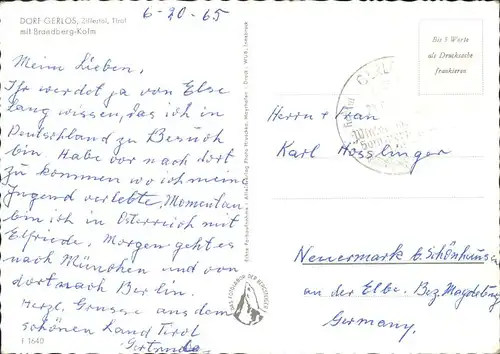 DORF GERLOS, Zillertal, Tirol
mit Brandberg-Kolm
6-20-65
Meine Lieben.
Ihr werdet ja von Else
lang wissen, das ich in
Deutschland zu Besuch
bin. Habe vor nach dort
zu kommen wo ich meine
Jugend verlebte. Momentan
bin ich in Österreich mit
Elfriede. Morgen geht es
nach München und von
dort nach Berlin.
Herzl. Grüsse aus dem
schönen Land Tirol
Gertrude
F 1640
DAS FOTOHAUS DER BERGSTEIGER
Bis 5 Worte
als Drucksache
frankieren
Herrn + Frau
Karl Hösslinger
Neuermark b. Schönhausen
an der Elbe. Bez. Magdeburg
Germany.